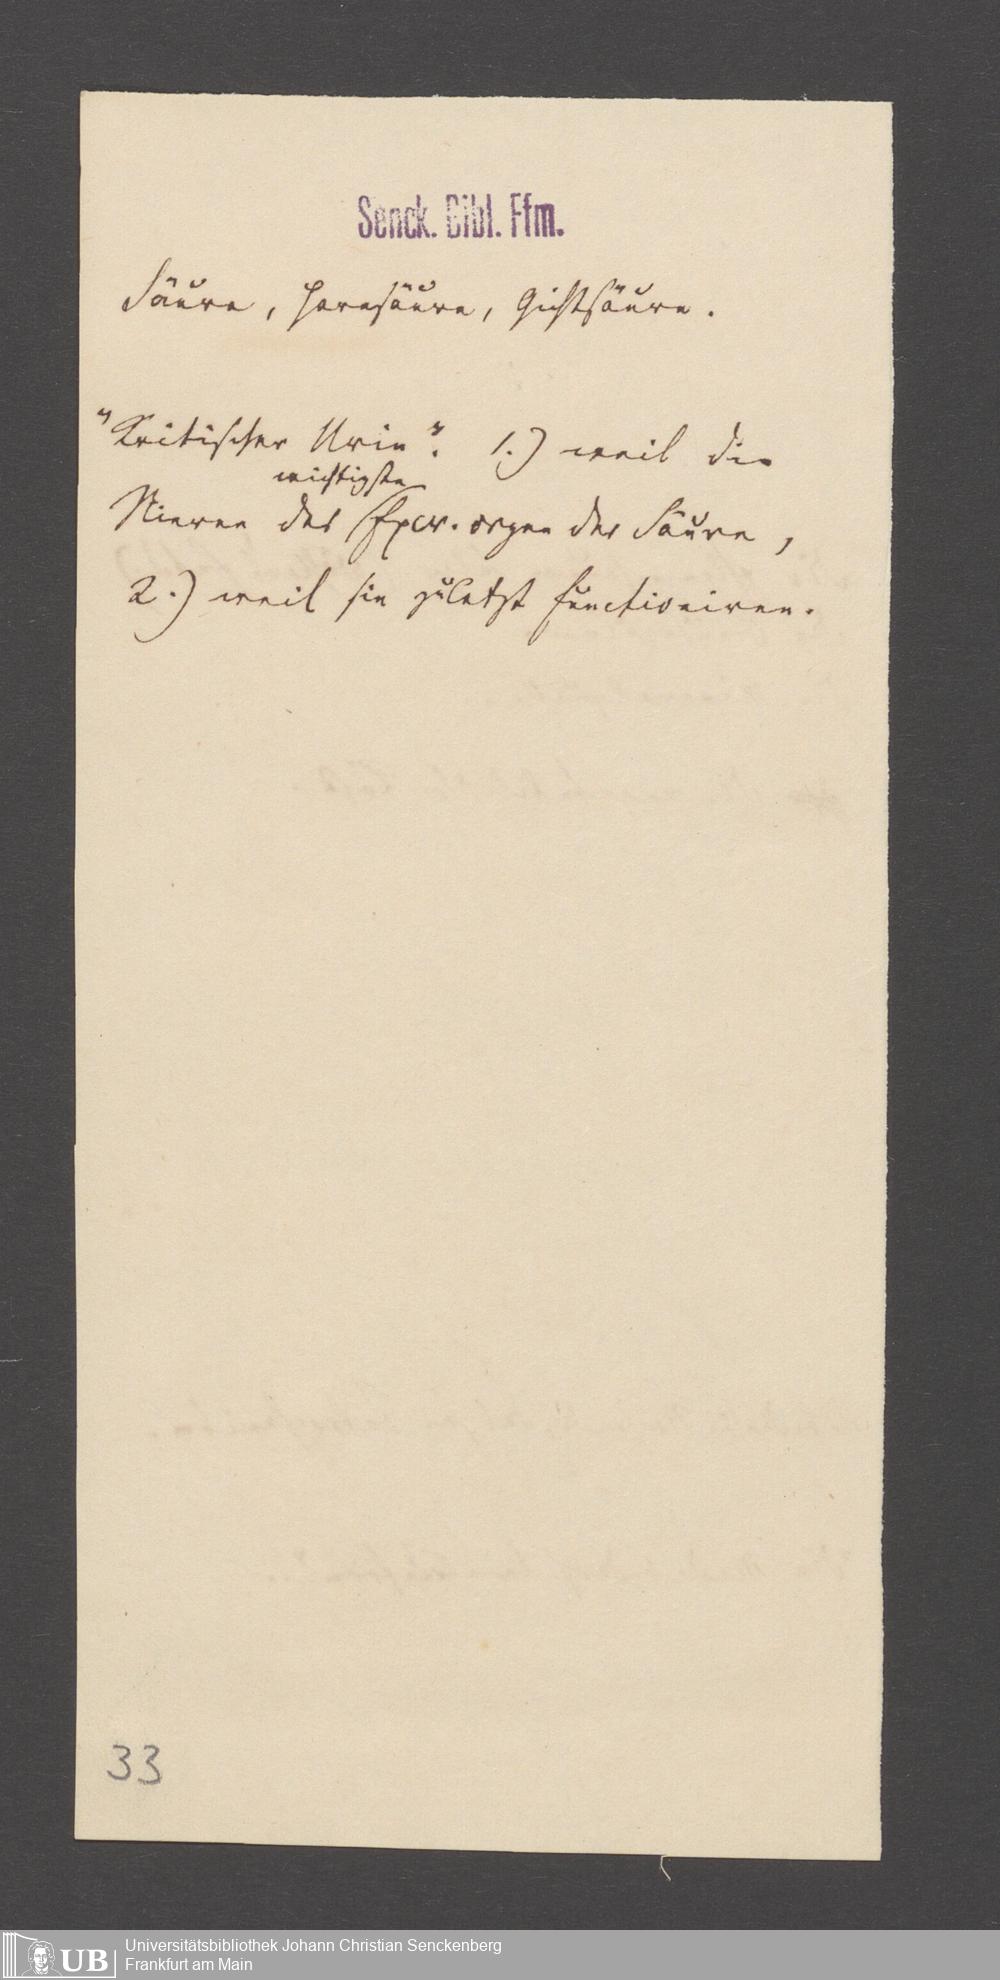 Senck. Bibl. Ffm.
Säure, Harnsäure, Gichtsäure.
"Kritischer Urin": 1.) weil die
wichtigste
Nieren das Excr. organ der Säure,
2.) weil sie zuletzt functioniren.
33
UB
Universitätsbibliothek Johann Christian Senckenberg
Frankfurt am Main